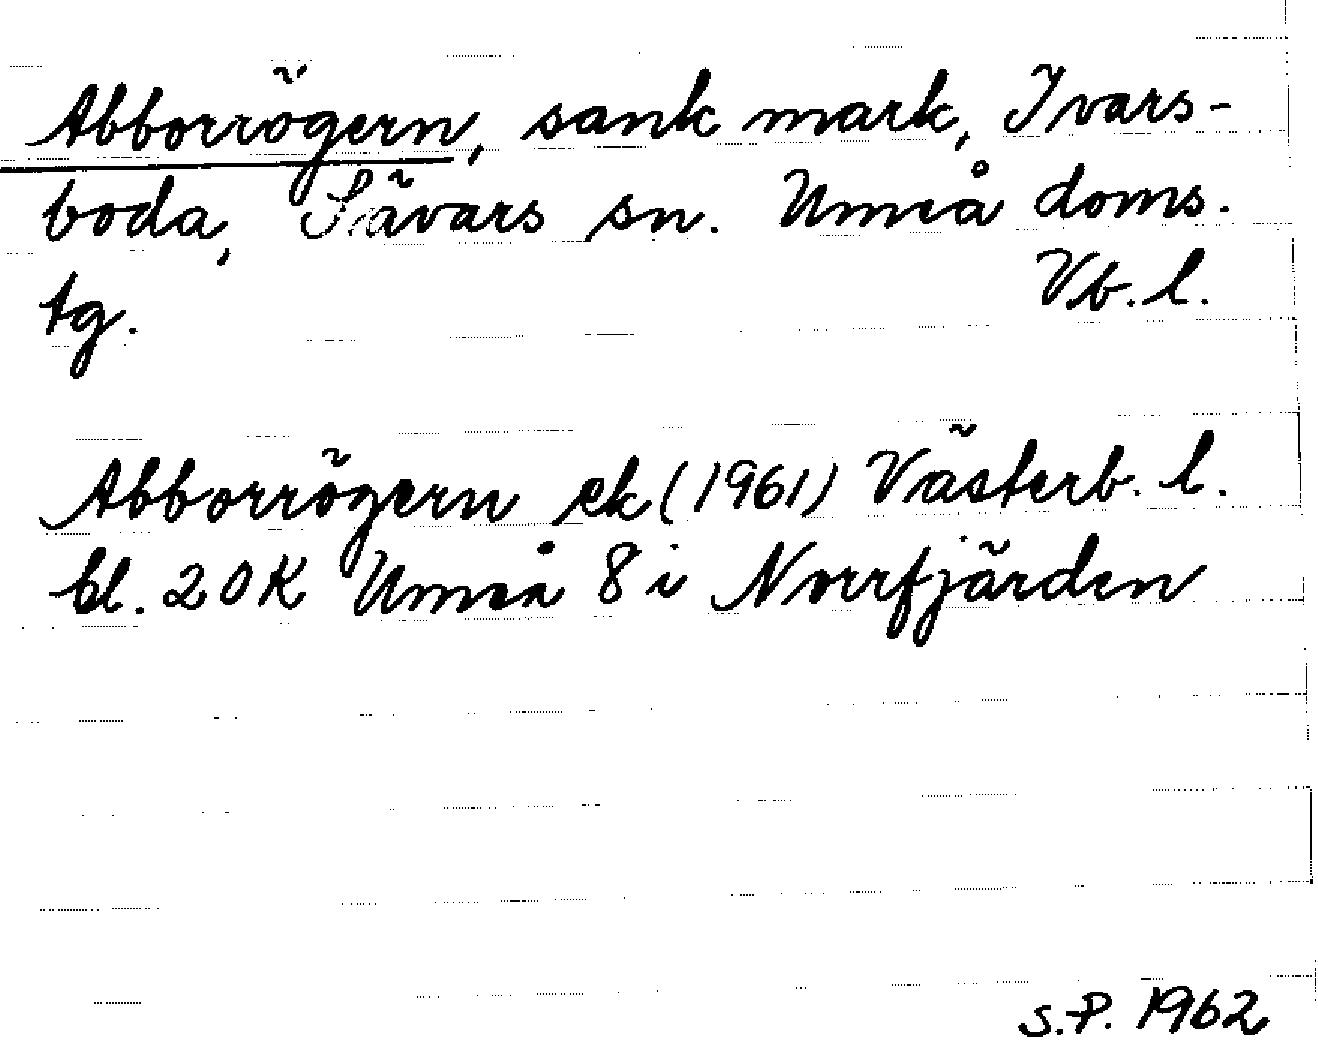 Abborrögern, sank mark, Ivars-
boda, Sävars sn. Umeå doms.
tg. Vb. l.
Abborrögern ek (1961) Västerb. l.
bl. 20K Umeå 8 i Norrfjärden
S.P. 1962